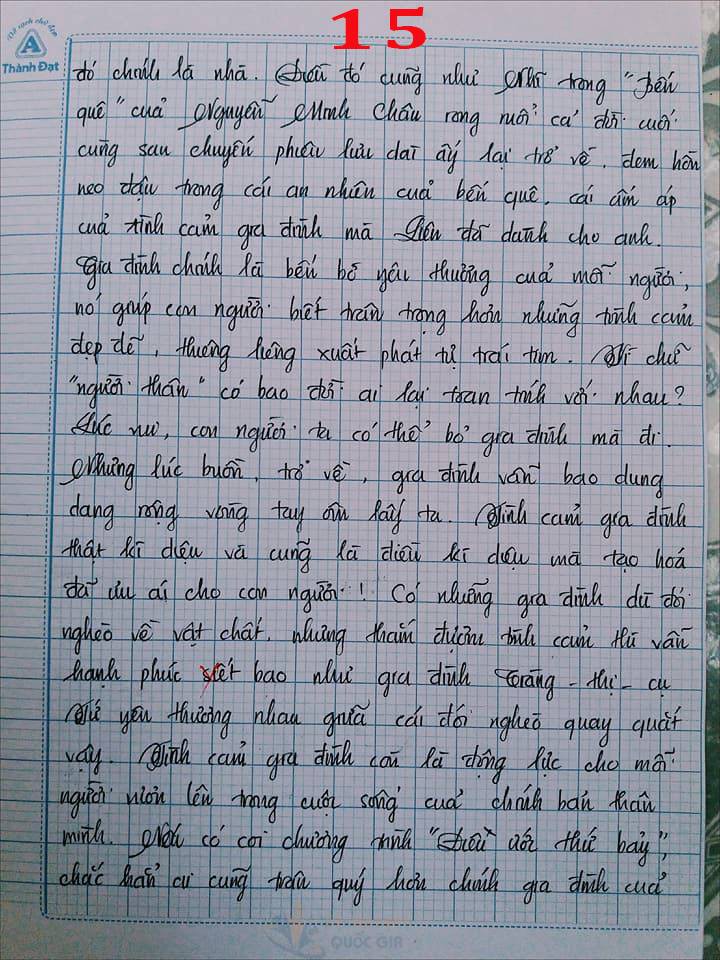 15
Vở sạch chữ đẹp
Thành Đạt
đó chính là nhà. Điều đó cũng như Nhĩ trong "Bến
quê" của Nguyễn Minh Châu rong ruổi cả đời cuối
cùng sau chuyến phiêu lưu dài ấy lại trở về, đem hồn
neo đậu trong cái an nhiên của bến quê, cái ấm áp
của tình cảm gia đình mà Liên đã dành cho anh.
Gia đình chính là bến bờ yêu thương của mỗi người,
nó giúp con người biết trân trọng hơn những tình cảm
đẹp đẽ, thiêng liêng xuất phát từ trái tim. Vì chữ
"người thân" có bao đời ai lại toan tính với nhau?
Lúc vui, con người ta có thể bỏ gia đình mà đi.
Nhưng lúc buồn, trở về, gia đình vẫn bao dung
dang rộng vòng tay ôm lấy ta. Tình cảm gia đình
thật kì diệu và cũng là điều kì diệu mà tạo hoá
đã ưu ái cho con người! Có những gia đình dù đói
nghèo về vật chất, nhưng thấm đượm tình cảm thì vẫn
hạnh phúc xiết bao như gia đình Tràng - thị - cụ
Tứ yêu thương nhau giữa cái đói nghèo quay quắt
vậy. Tình cảm gia đình còn là động lực cho mỗi
người vươn lên trong cuộc sống của chính bản thân
mình. Nếu có coi chương trình "Điều ước thứ bảy",
chắc hẳn ai cũng trân quý hơn chính gia đình của
QUỐC GIA